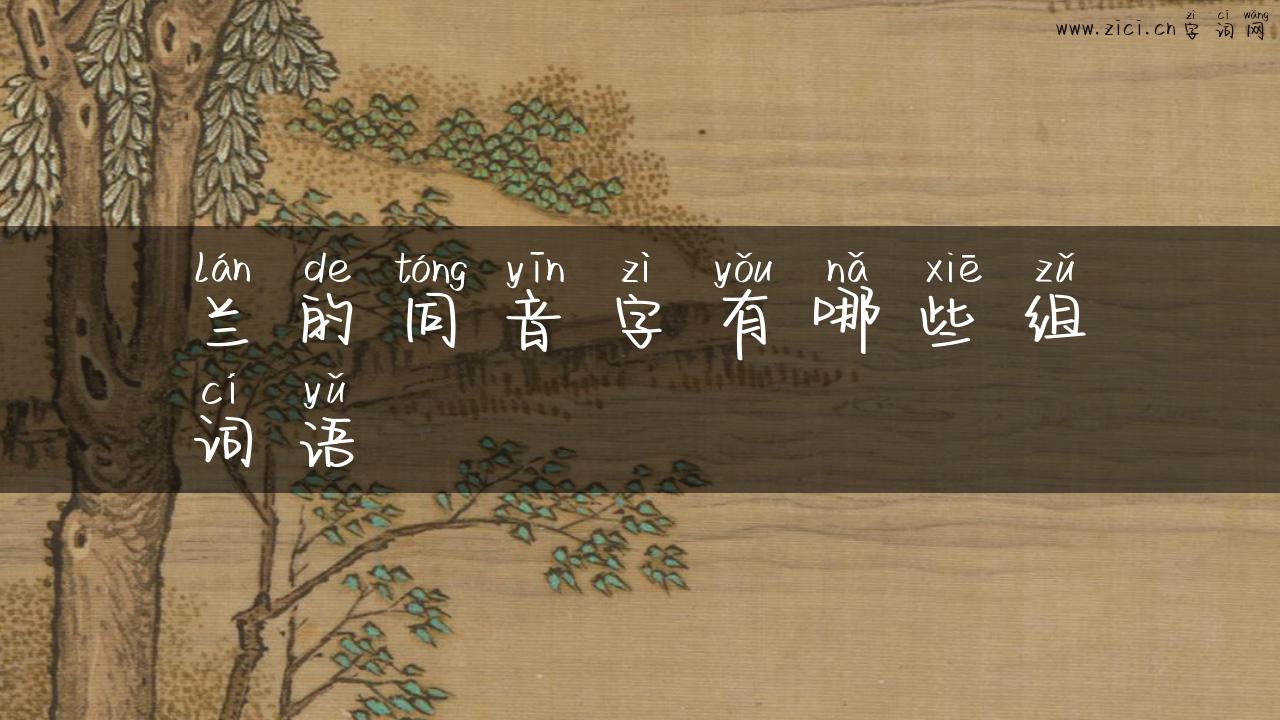 zì cí wǎng
www.zici.cn 字 词 网
lán de tóng yīn zì yǒu nǎ xiē zǔ
兰 的 同 音 字 有 哪 些 组
cí yǔ
词 语